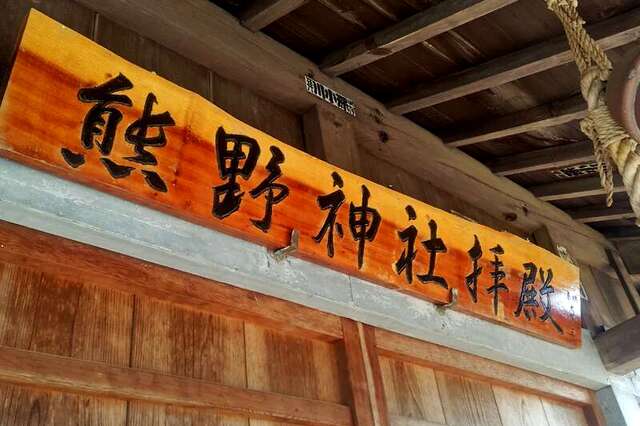 熊野神社拝殿